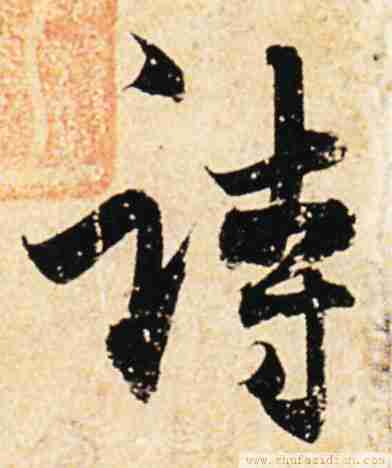 詩
www.shufazidian.com